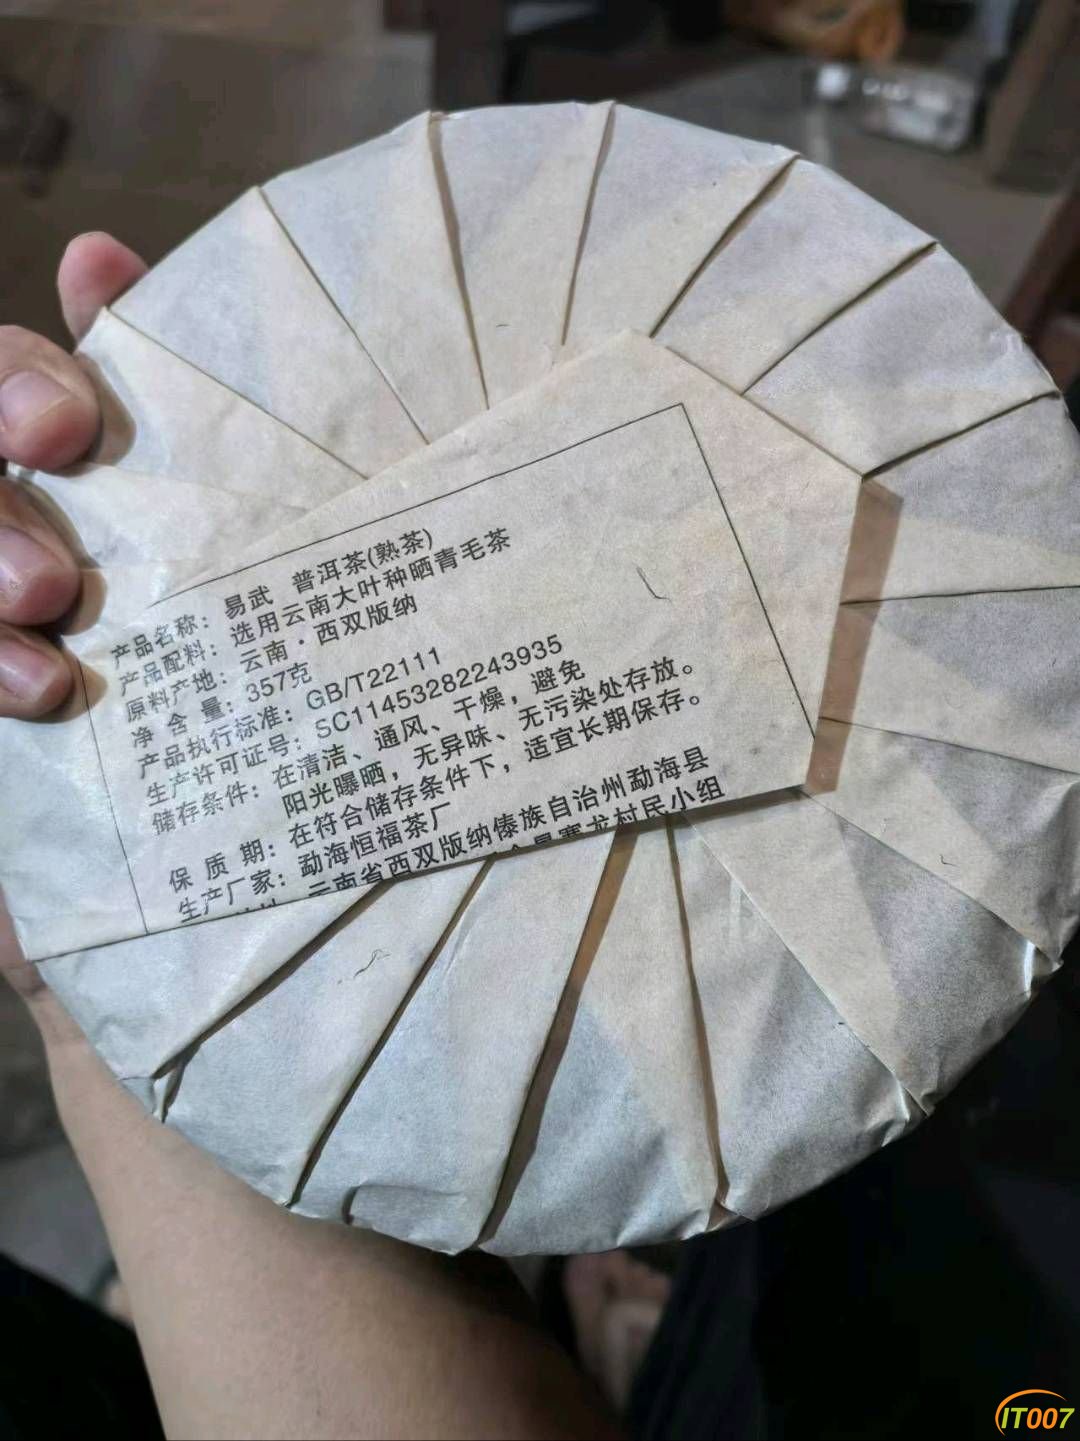 产品名称：易武 普洱茶(熟茶)
产品配料：选用云南大叶种晒青毛茶
原料产地：云南·西双版纳
净 含 量：357克
产品执行标准：GB/T22111
生产许可证号：SC11453282243935
储存条件：在清洁、通风、干燥，避免
阳光曝晒，无异味、无污染处存放。
保 质 期：在符合储存条件下，适宜长期保存。
生产厂家：勐海恒福茶厂
云南省西双版纳傣族自治州勐海县
村民小组
IT007